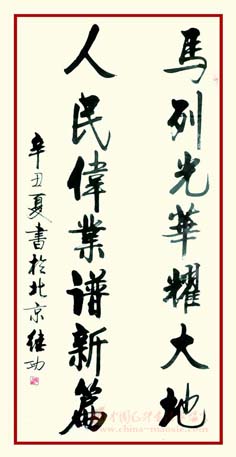 馬列光華耀大地
人民偉業譜新篇
辛丑夏書於北京継功
www.china-maoxie.com